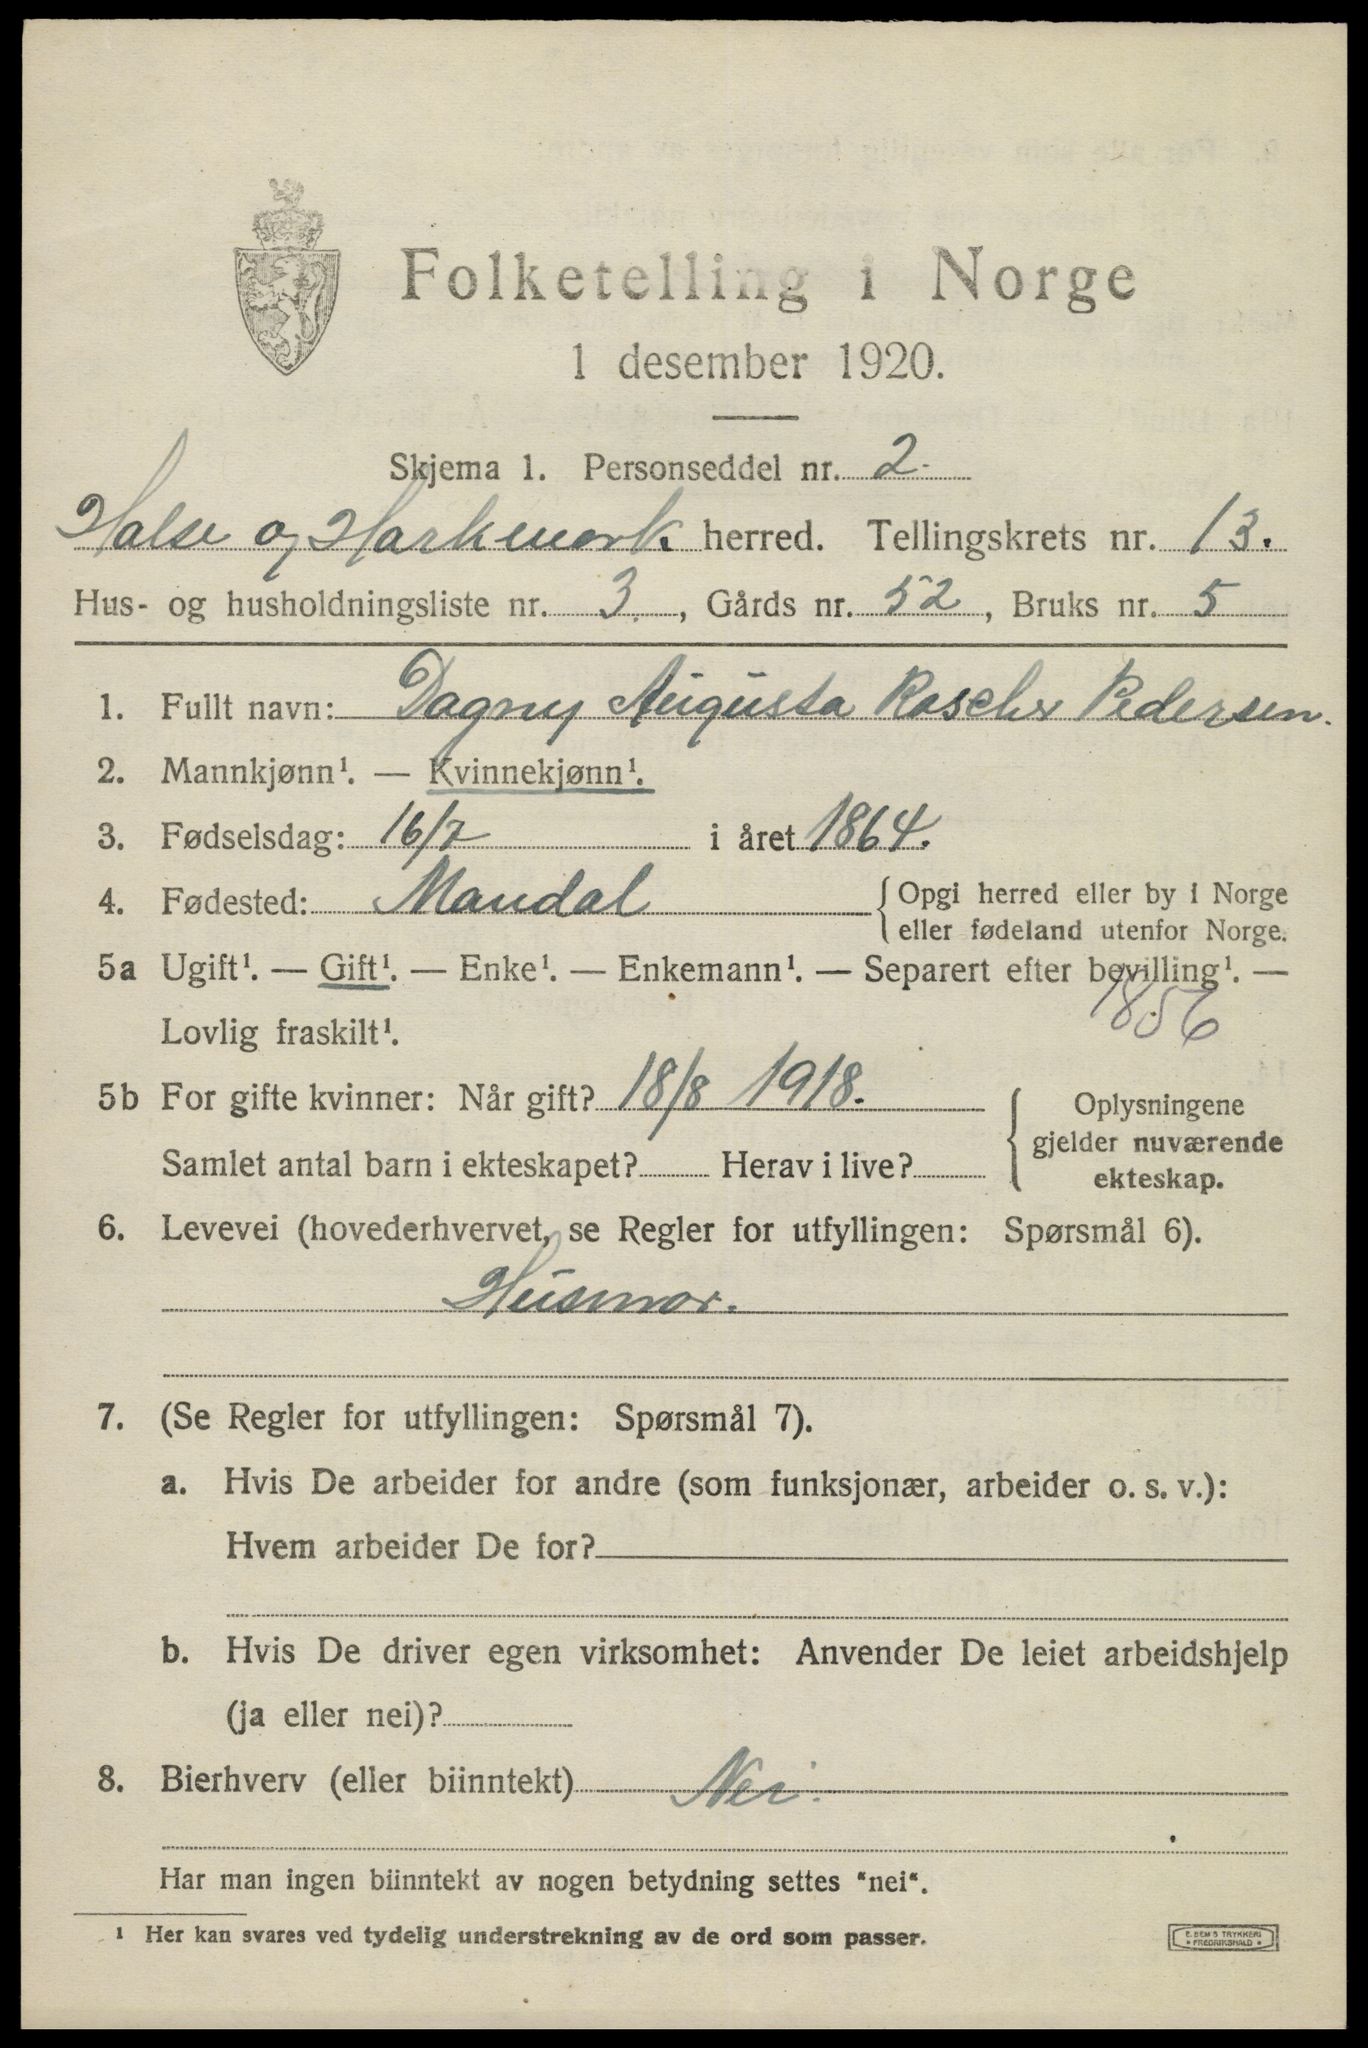 Folketelling i Norge
1 desember 1920.
Skjema 1. Personseddel nr. 2.
Halse og Harkmark herred. Tellingskrets nr. 13.
Hus- og husholdningsliste nr. 3, Gårds nr. 52, Bruks nr. 5
1. Fullt navn: Dagny Augusta Roscher Pedersen.
2. Mannkjønn¹. — Kvinnekjønn¹.
3. Fødselsdag: 16/7 i året 1864.
4. Fødested: Mandal
{ Opgi herred eller by i Norge
eller fødeland utenfor Norge.
5a Ugift¹. — Gift¹. — Enke¹. — Enkemann¹. — Separert efter bevilling¹. —
1856
Lovlig fraskilt¹.
5b For gifte kvinner: Når gift? 18/8 1918.
Samlet antal barn i ekteskapet? Herav i live?
{ Oplysningene
gjelder nuværende
ekteskap.
6. Levevei (hovederhvervet, se Regler for utfyllingen: Spørsmål 6).
Husmor.
7. (Se Regler for utfyllingen: Spørsmål 7).
a. Hvis De arbeider for andre (som funksjonær, arbeider o. s. v.):
Hvem arbeider De for?
b. Hvis De driver egen virksomhet: Anvender De leiet arbeidshjelp
(ja eller nei)?
8. Bierhverv (eller biinntekt) Nei.
Har man ingen biinntekt av nogen betydning settes "nei".
¹ Her kan svares ved tydelig understrekning av de ord som passer.
E. SEM'S TRYKKERI
* FREDRIKSHALD *